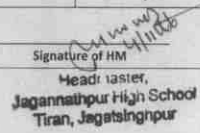 Signature of HM
Headmaster,
Jagannathpur High School
Tiran, Jagatsinghpur